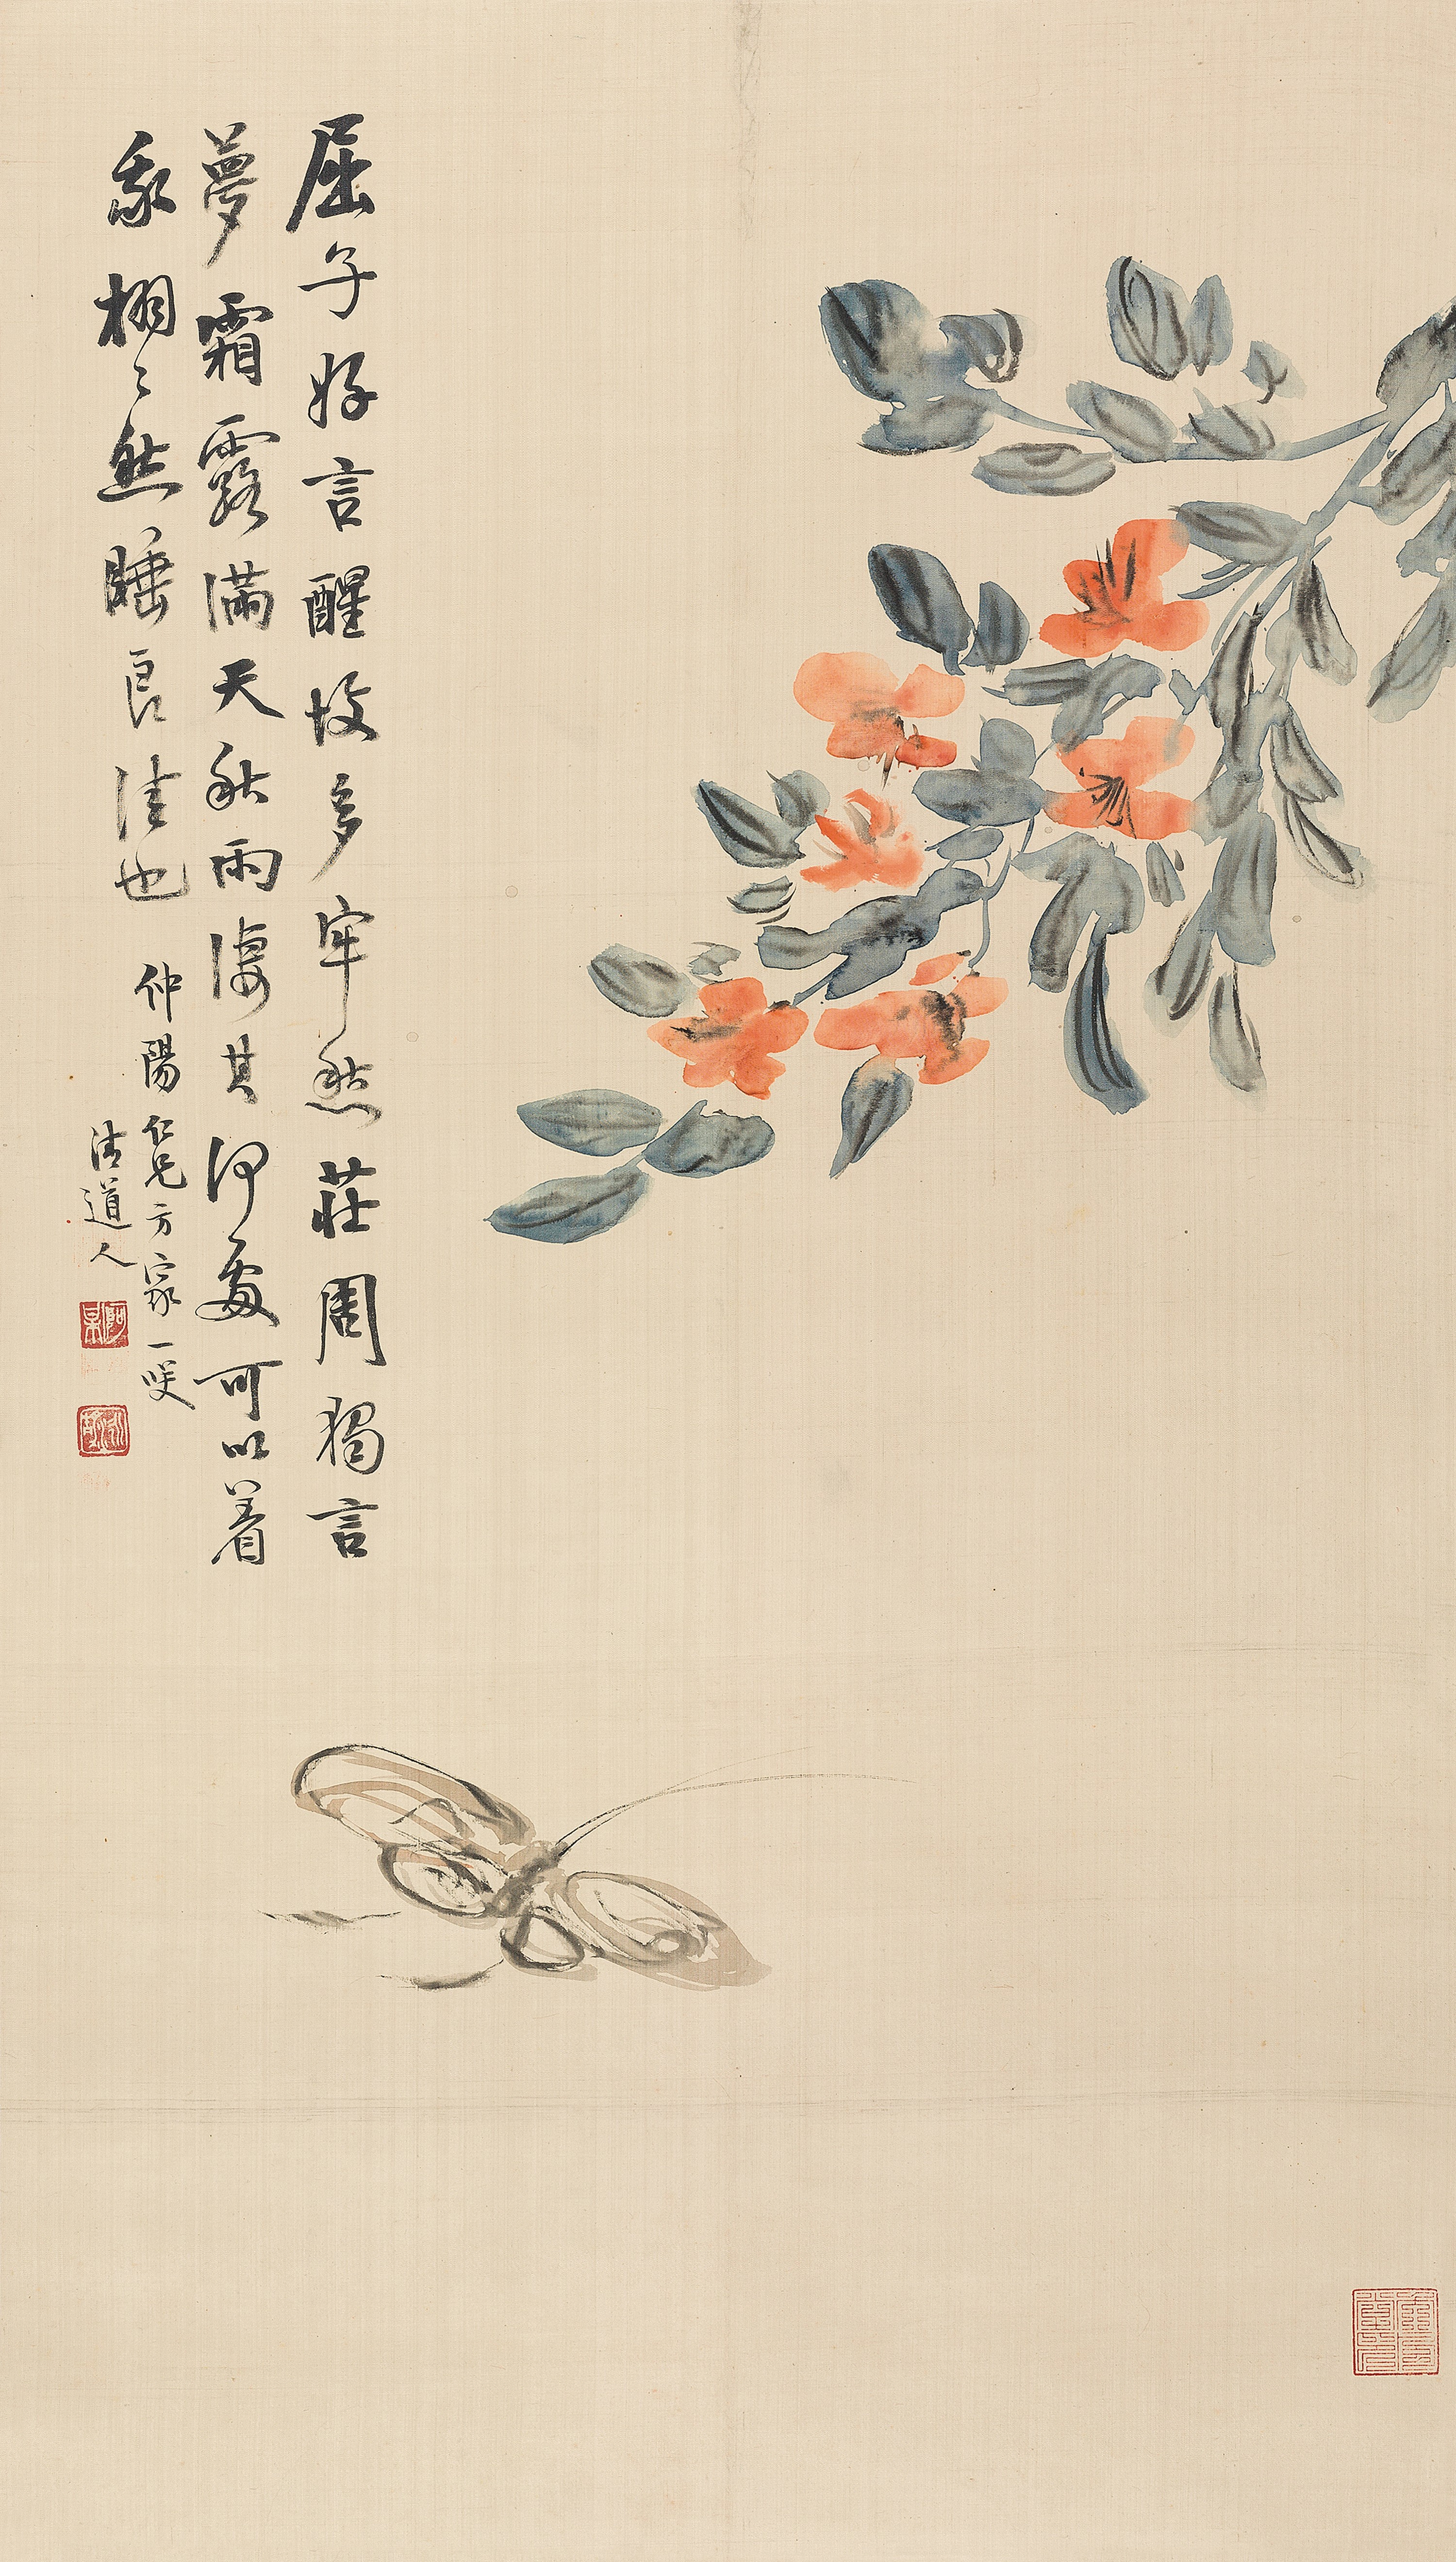 屈子好言醒故多牢愁莊周獨言
夢霜露滿天秋雨淒其何處可以着
我栩々然睡良佳也
仲陽仁兄方家一咲
清道人
阿某